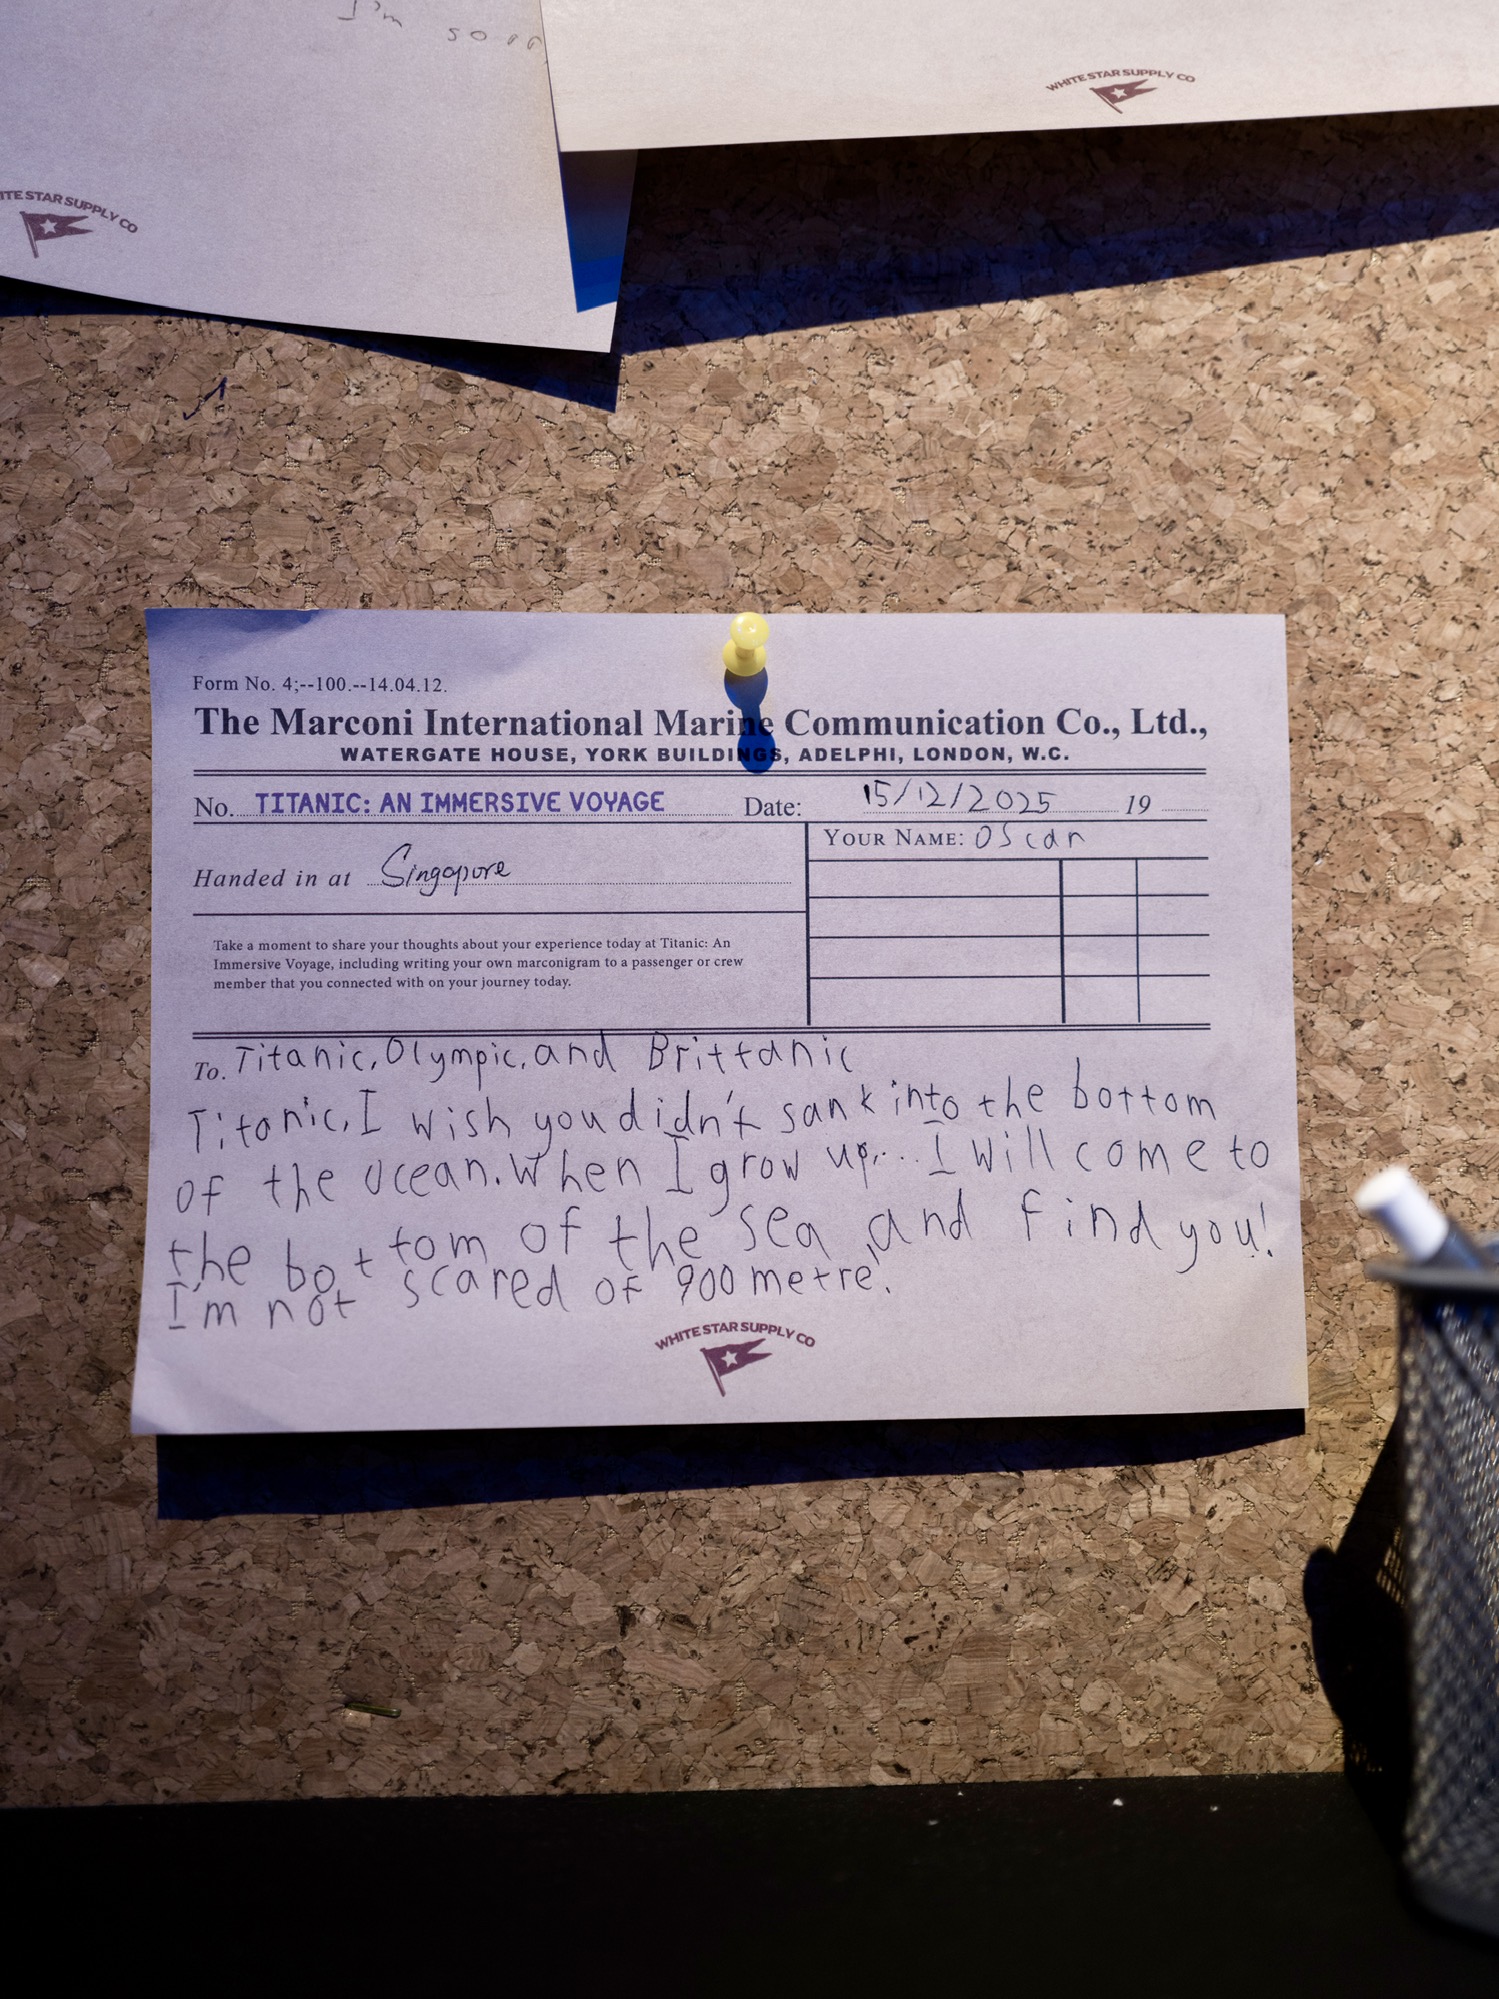 I'm
WHITE STAR SUPPLY CO
ITE STAR SUPPLY CO
Form No. 4;--100.--14.04.12.
The Marconi International Marine Communication Co., Ltd.,
WATERGATE HOUSE, YORK BUILDINGS, ADELPHI, LONDON, W.C.
No. TITANIC: AN IMMERSIVE VOYAGE Date: 15/12/2025 19
YOUR NAME: OScar
Handed in at Singapore
Take a moment to share your thoughts about your experience today at Titanic: An
Immersive Voyage, including writing your own marconigram to a passenger or crew
member that you connected with on your journey today.
To. Titanic, Olympic, and Brittanic
Titanic, I wish you didn't sank into the bottom
of the ocean. When I grow up... I will come to
the bottom of the sea, and find you!
I'm not scared of 900 metre.
WHITE STAR SUPPLY CO